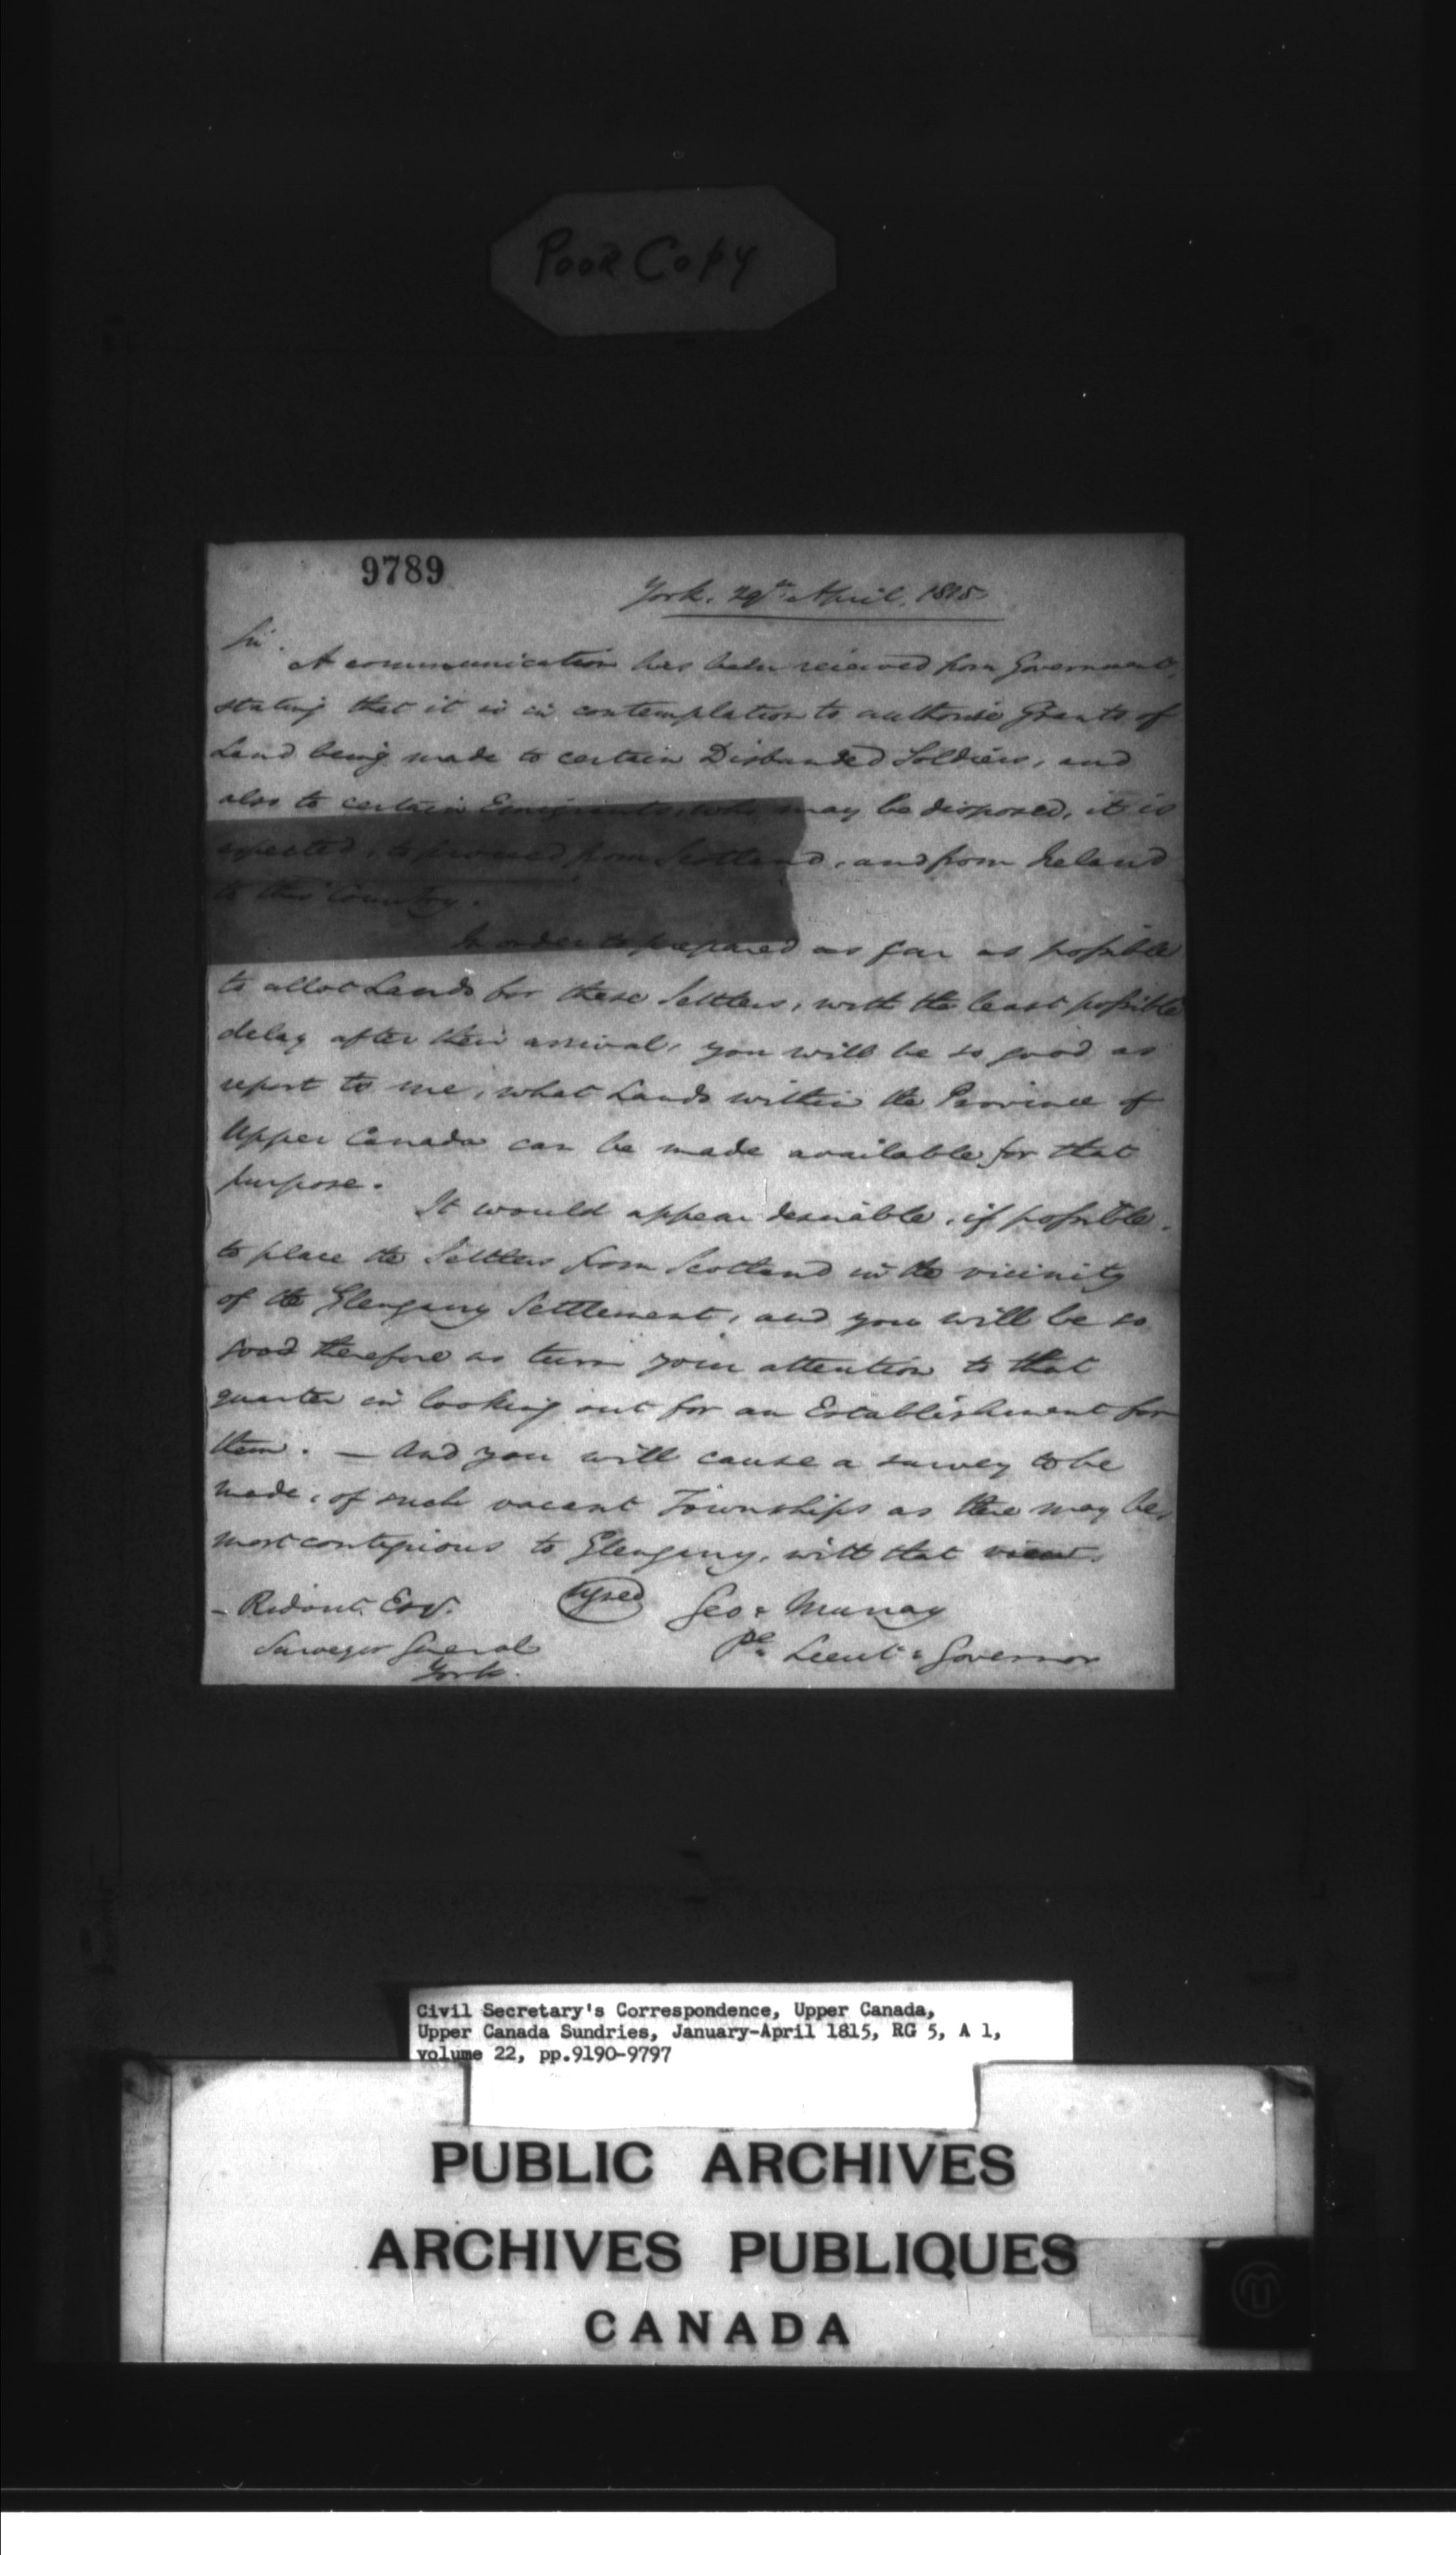 Poor Copy
9789
York, 29th April, 1815
Sir.
A communication has been received from Government,
stating that it is in contemplation to authorise Grants of
Land being made to certain Disbanded Soldiers, and
also to certain Emigrants, who may be disposed, it is
expected, to proceed from Scotland, and from Ireland
to this Country.
In order to prepared as far as possible
to allot Lands for these Settlers, with the least possible
delay after their arrival, you will be so good as
report to me, what Lands within the Province of
Upper Canada can be made available for that
purpose.
It would appear desirable, if possible,
to place the Settlers from Scotland in the vicinity
of the Glengary Settlement, and you will be so
good therefore as turn your attention to that
quarter in looking out for an Establishment for
them. — And you will cause a survey to be
made, of such vacant Townships as there may be,
most contigious to Glengary, with that view.
– Ridout Esqr. Signed Geo: Murray
Surveyor General Pl. Lieut: Governor
York.
Civil Secretary's Correspondence, Upper Canada,
Upper Canada Sundries, January-April 1815, RG 5, A 1,
volume 22, pp.9190-9797
PUBLIC ARCHIVES
ARCHIVES PUBLIQUES
CANADA